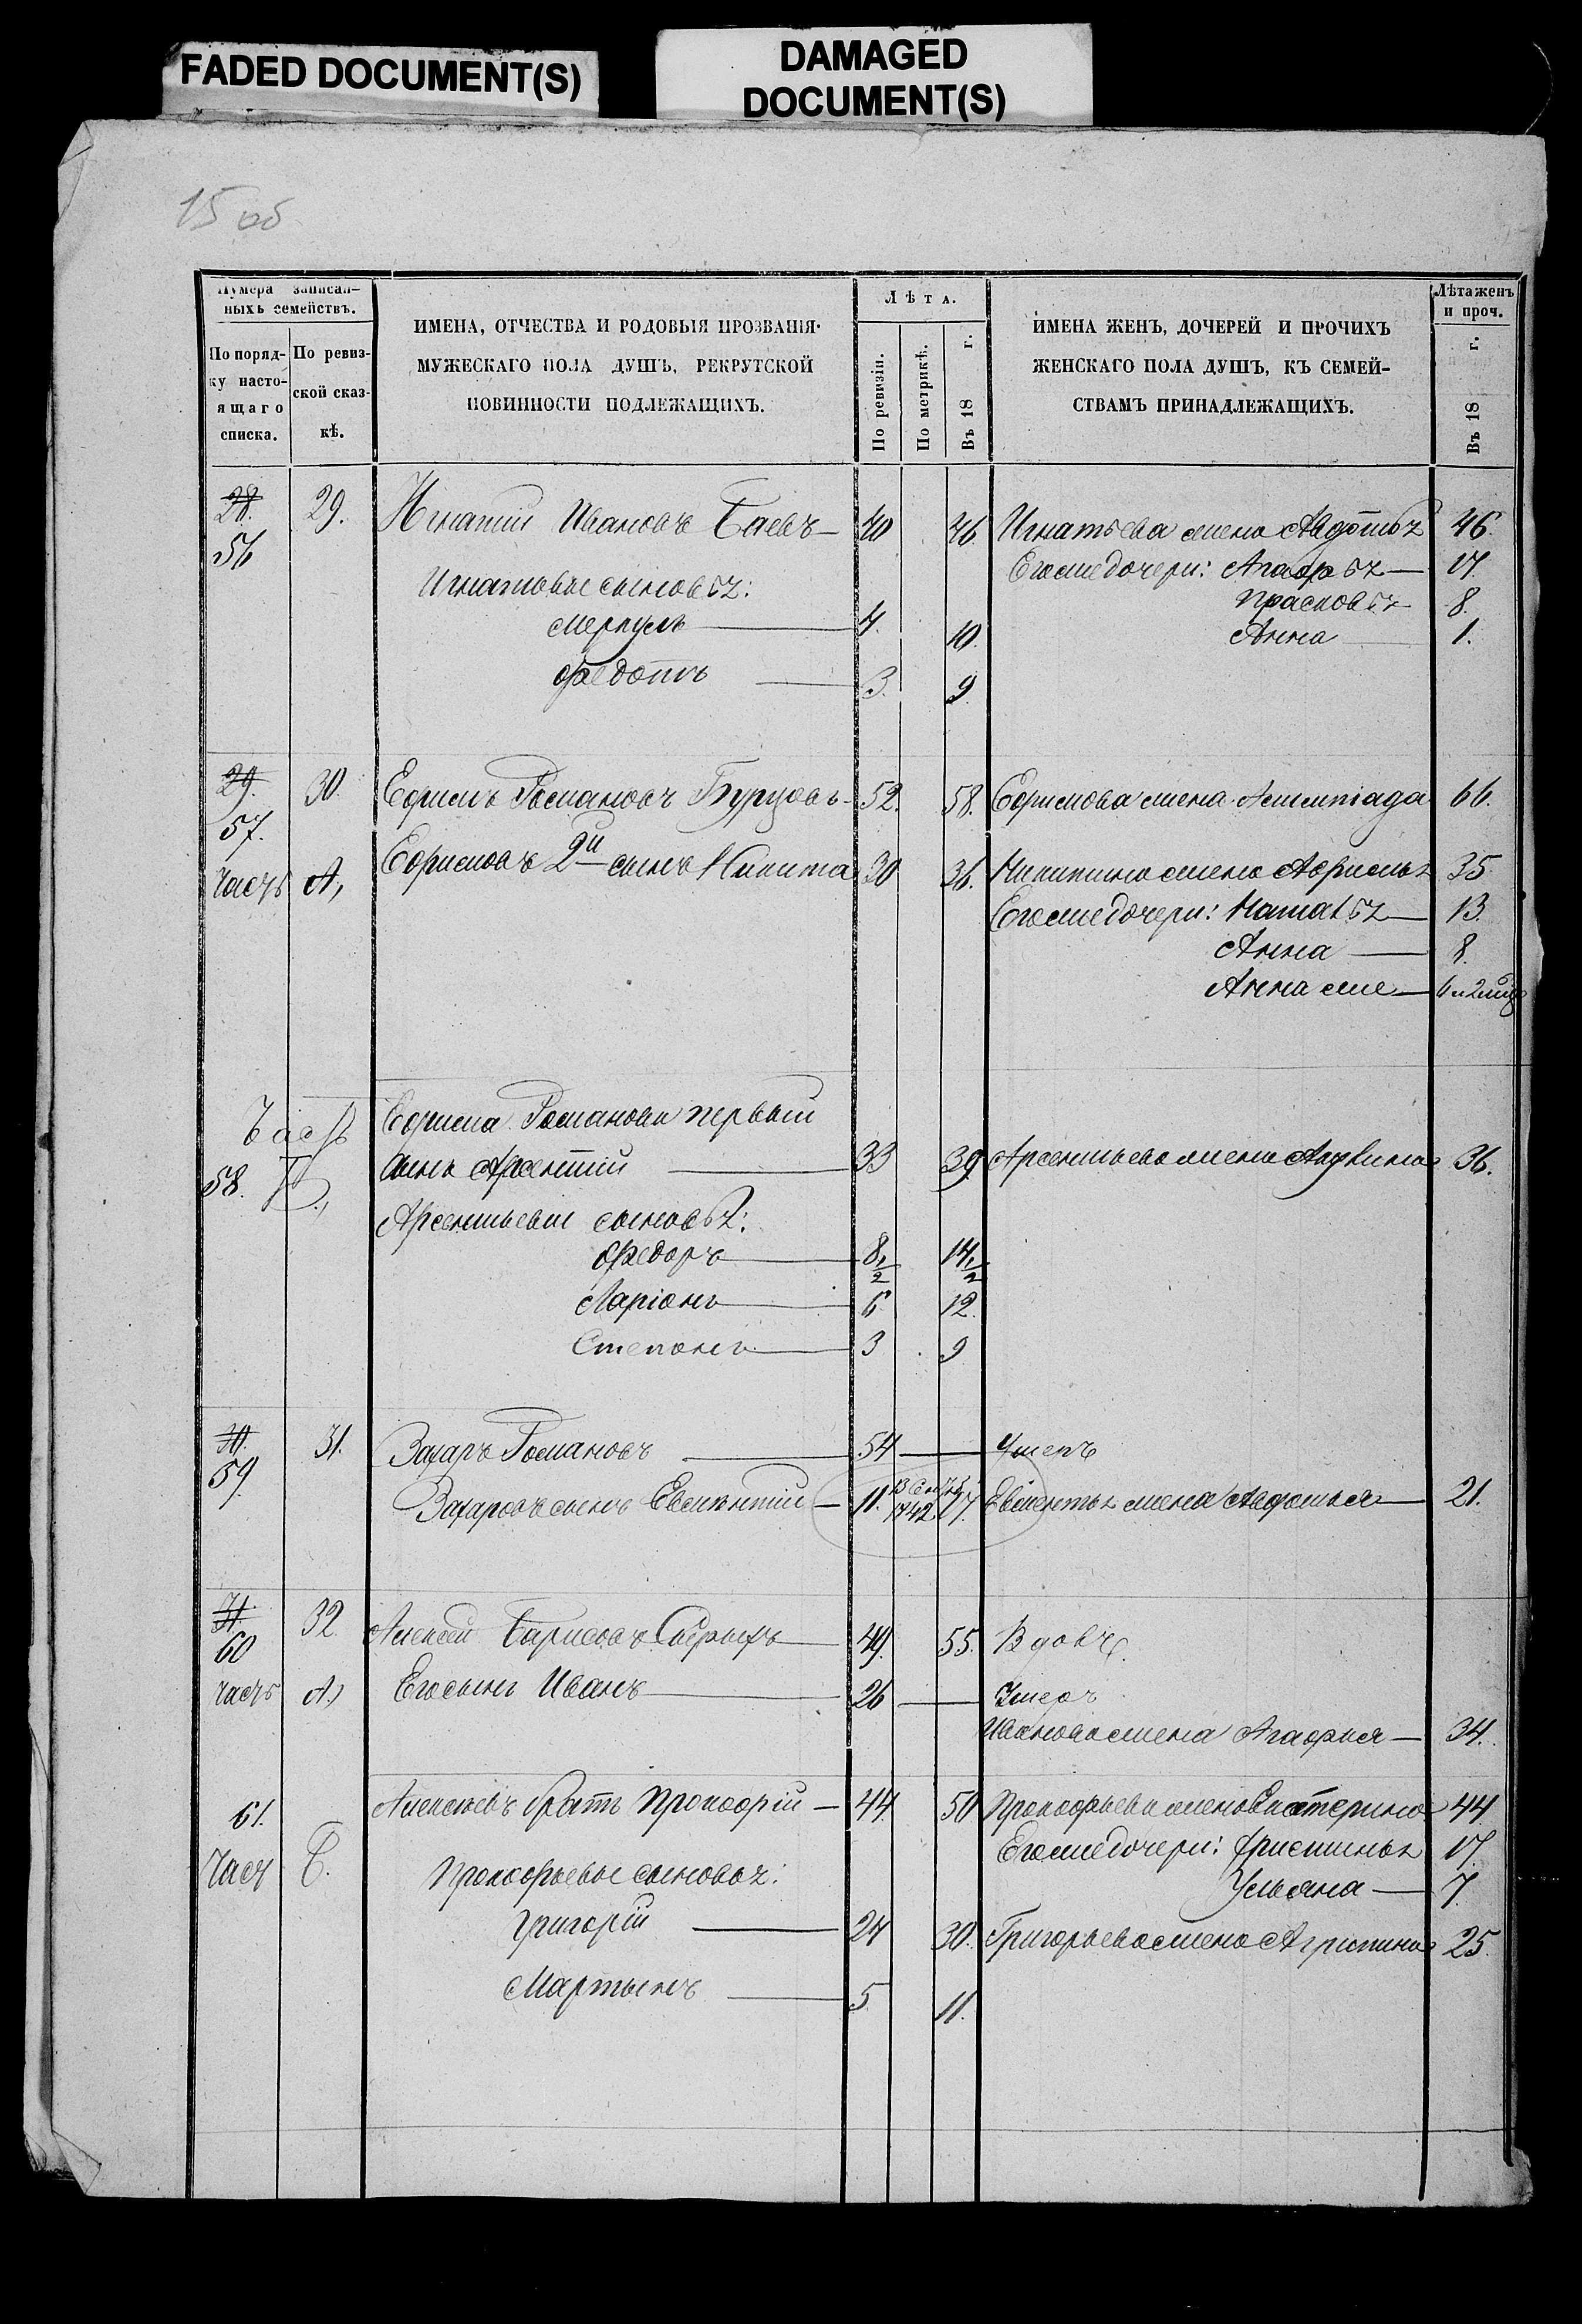 FADED DOCUMENT(S)
DAMAGED
DOCUMENT(S)
15 об
Нумера записан-
ныхъ семействъ.
По поряд-
ку насто-
ящаго
списка.
По ревиз-
ской сказ-
кѣ.
ИМЕНА, ОТЧЕСТВА И РОДОВЫЯ ПРОЗВАНІЯ
МУЖЕСКАГО ПОЛА ДУШЪ, РЕКРУТСКОЙ
ПОВИННОСТИ ПОДЛЕЖАЩИХЪ.
Лѣта.
По ревизіи.
По метрикѣ.
Въ 18 г.
ИМЕНА ЖЕНЪ, ДОЧЕРЕЙ И ПРОЧИХЪ
ЖЕНСКАГО ПОЛА ДУШЪ, КЪ СЕМЕЙ-
СТВАМЪ ПРИНАДЛЕЖАЩИХЪ.
Лѣта женъ
и проч.
Въ 18 г.
28. 29. Игнатій Ивановъ Баевъ — 40 46 Игнатьева жена Авдотья 46.
56
Игнатовы сыновья: Его же дочери: Агафья — 17.
Прасковья 8.
Меркулъ — 4. 10. Анна 1.
Федотъ — 3. 9
29. 30. Ефимъ Романовъ Бурцовъ 52. 58. Ефимова жена 66.
57.
Часть А, Ефимовъ 2й сынъ Никита 30 36. Никитина жена Афимья 35
Его же дочери: Наталья — 13.
Анна — 8.
Анна же —
Часть Ефима Романова первый
58. Б., сынъ Арсентій — 33 39 Арсентьева жена 36.
Арсентьевы сыновья:
Федоръ — 8 1/2 14 1/2
Ларіонъ — 6 12.
Степанъ — 3 9
30. 31. Захаръ Романовъ — 54 — Умеръ
59.
Захаровъ сынъ — 11. 1842 17. жена Авдотья — 21.
31. 32. Алексѣй Борисовъ Сѣрыхъ — 49. 55. Вдовъ.
60
Часть А.) Его сынъ Иванъ — 26 — Умеръ
Иванова жена Агафья — 34.
61. Алексѣевъ братъ Прокофій — 44. 50 Прокофьева жена Екатерина 44
Его же дочери: Христинья 17.
Часть Б. Прокофьевы сыновья:
Ульяна — 7.
Григорій — 24 30. Григорьева жена Агрипина 25.
Мартынъ — 5 11.